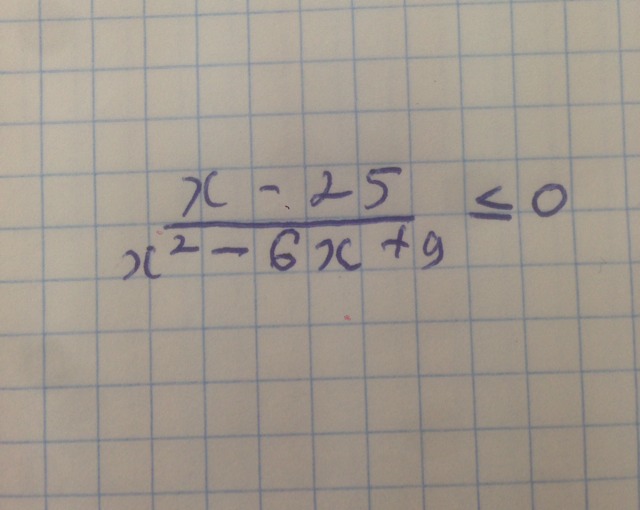 x - 25
x² - 6x + 9 ≤ 0